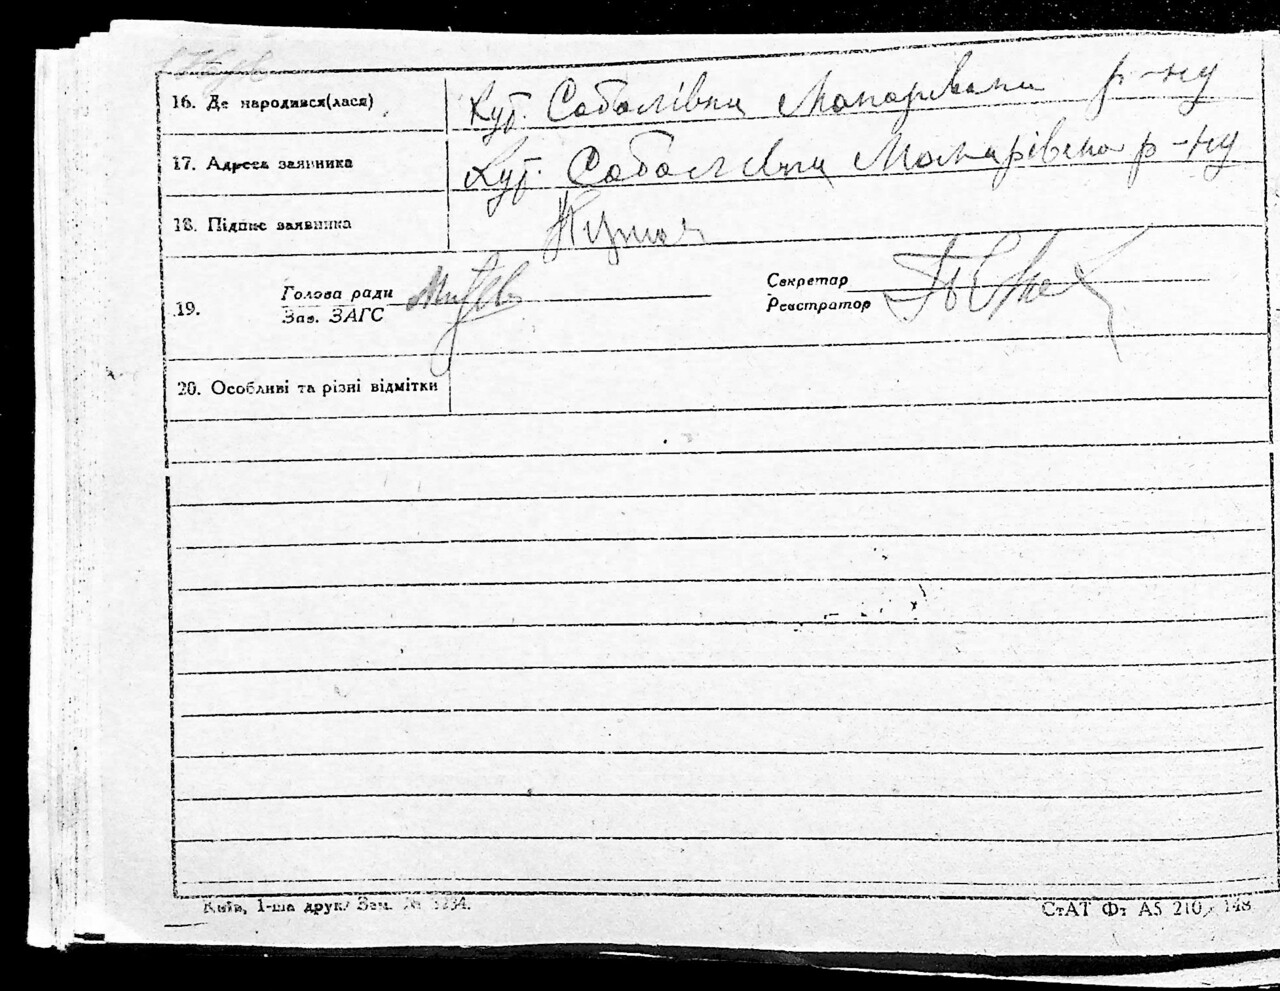 16. Де народився(лася) Хут. Соболівка Макарівського р-ну
17. Адреса заявника Хут. Соболівка Макарівського р-ну
18. Підпис заявника
19. Голова ради Секретар
Зав. ЗАГС Реєстратор
20. Особливі та різні відмітки
Київ, 1-ша друк. Зам. №
СтАТ Фт А5 210 × 148